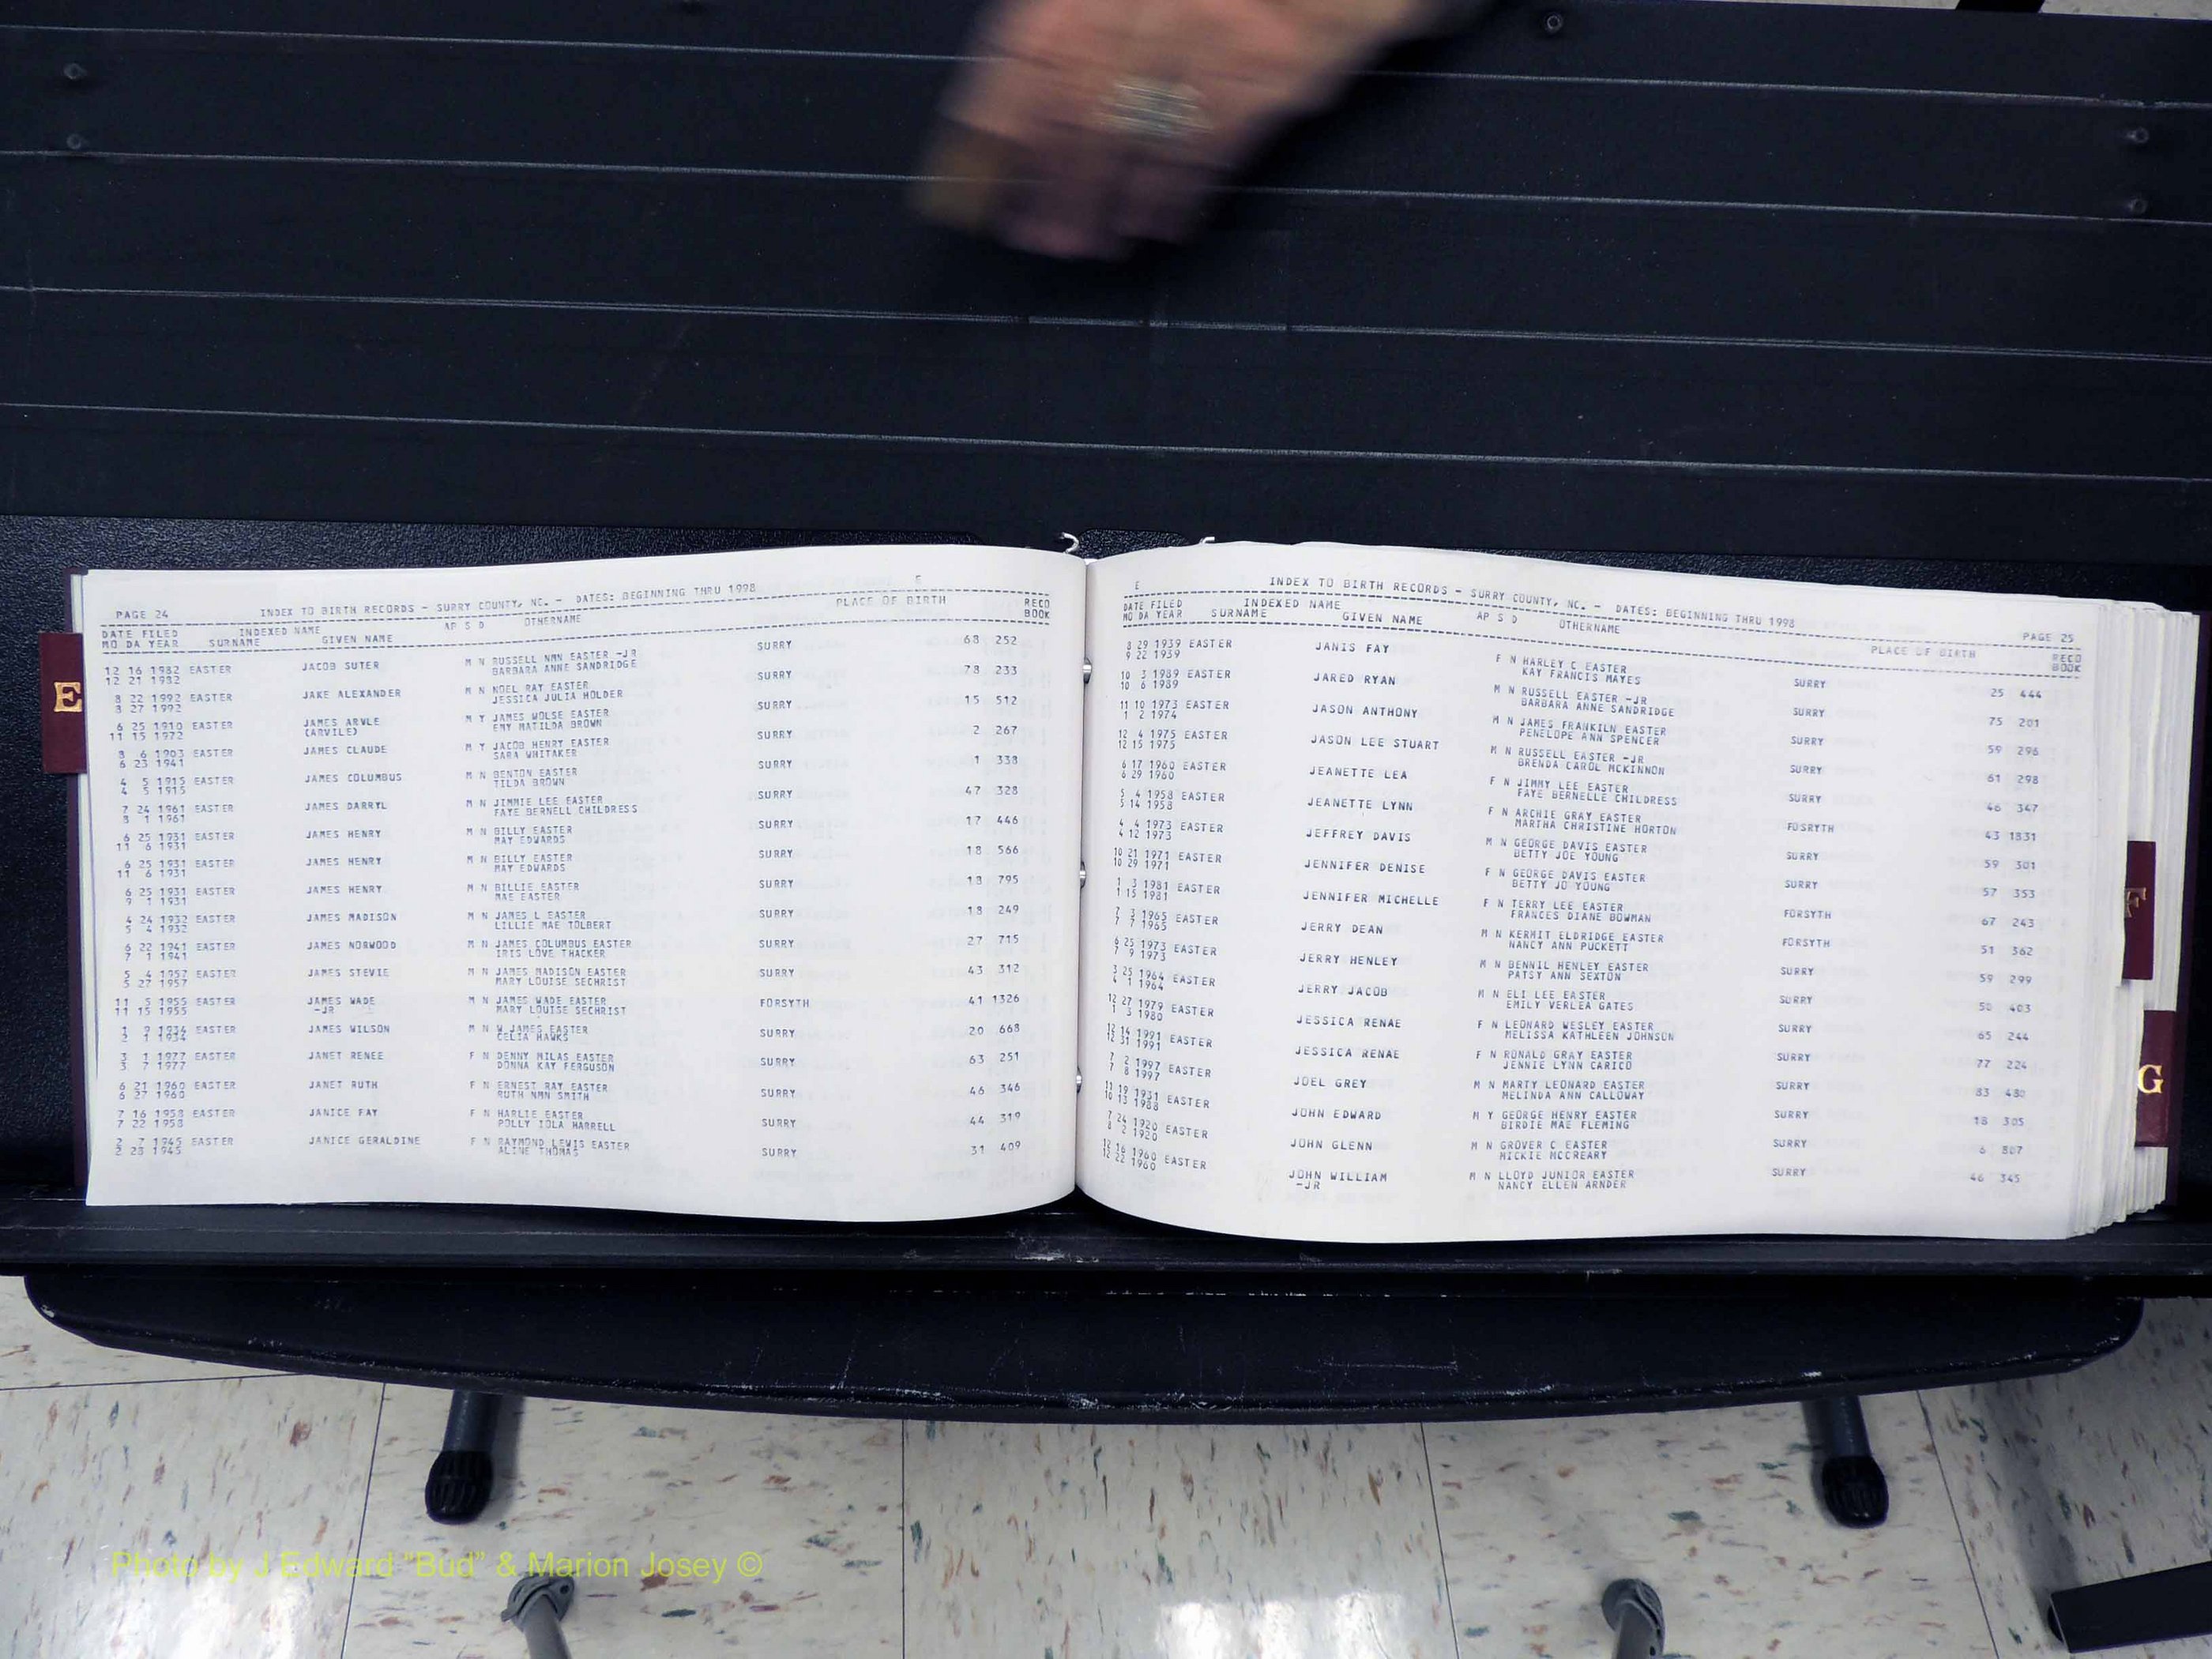 E
PAGE 24 INDEX TO BIRTH RECORDS - SURRY COUNTY, NC. - DATES: BEGINNING THRU 1998
DATE FILED INDEXED NAME AP S D OTHERNAME PLACE OF BIRTH RECD
MO DA YEAR SURNAME GIVEN NAME BOOK
12 16 1982 EASTER JACOB SUTER M N RUSSELL NMN EASTER -JR SURRY 68 252
12 21 1982 BARBARA ANNE SANDRIDGE
8 22 1992 EASTER JAKE ALEXANDER M N NOEL RAY EASTER SURRY 78 233
8 27 1992 JESSICA JULIA HOLDER
6 25 1910 EASTER JAMES ARVLE M Y JAMES WOLSE EASTER SURRY 15 512
11 15 1972 (ARVILE) EMY MATILDA BROWN
8 6 1903 EASTER JAMES CLAUDE M Y JACOB HENRY EASTER SURRY 2 267
6 23 1941 SARA WHITAKER
4 5 1915 EASTER JAMES COLUMBUS M N BENTON EASTER SURRY 1 338
4 5 1915 TILDA BROWN
7 24 1961 EASTER JAMES DARRYL M N JIMMIE LEE EASTER SURRY 47 328
8 1 1961 FAYE BERNELL CHILDRESS
6 25 1931 EASTER JAMES HENRY M N BILLY EASTER SURRY 17 446
11 6 1931 MAY EDWARDS
6 25 1931 EASTER JAMES HENRY M N BILLY EASTER SURRY 18 566
11 6 1931 MAY EDWARDS
6 25 1931 EASTER JAMES HENRY M N BILLIE EASTER SURRY 18 795
9 1 1931 MAE EASTER
4 24 1932 EASTER JAMES MADISON M N JAMES L EASTER SURRY 18 249
5 4 1932 LILLIE MAE TOLBERT
6 22 1941 EASTER JAMES NORWOOD M N JAMES COLUMBUS EASTER SURRY 27 715
7 1 1941 IRIS LOVE THACKER
5 4 1957 EASTER JAMES STEVIE M N JAMES MADISON EASTER SURRY 43 312
5 27 1957 MARY LOUISE SECHRIST
11 5 1955 EASTER JAMES WADE M N JAMES WADE EASTER FORSYTH 41 1326
11 15 1955 -JR MARY LOUISE SECHRIST
1 9 1934 EASTER JAMES WILSON M N W JAMES EASTER SURRY 20 668
2 1 1934 CELIA HAWKS
3 1 1977 EASTER JANET RENEE F N DENNY MILAS EASTER SURRY 63 251
3 7 1977 DONNA KAY FERGUSON
6 21 1960 EASTER JANET RUTH F N ERNEST RAY EASTER SURRY 46 346
6 27 1960 RUTH NMN SMITH
7 16 1958 EASTER JANICE FAY F N HARLIE EASTER SURRY 44 319
7 22 1958 POLLY IOLA HARRELL
2 7 1945 EASTER JANICE GERALDINE F N RAYMOND LEWIS EASTER SURRY 31 409
2 28 1945 ALINE THOMAS
E INDEX TO BIRTH RECORDS - SURRY COUNTY, NC. - DATES: BEGINNING THRU 1998 PAGE 25
DATE FILED INDEXED NAME AP S D OTHERNAME PLACE OF BIRTH RECD
MO DA YEAR SURNAME GIVEN NAME BOOK
8 29 1939 EASTER JANIS FAY F N HARLEY C EASTER SURRY 25 444
9 22 1939 KAY FRANCIS MAYES
10 3 1989 EASTER JARED RYAN M N RUSSELL EASTER -JR SURRY 75 201
10 6 1989 BARBARA ANNE SANDRIDGE
11 10 1973 EASTER JASON ANTHONY M N JAMES FRANKILN EASTER SURRY 59 296
1 2 1974 PENELOPE ANN SPENCER
12 4 1975 EASTER JASON LEE STUART M N RUSSELL EASTER -JR SURRY 61 298
12 15 1975 BRENDA CAROL MCKINNON
6 17 1960 EASTER JEANETTE LEA F N JIMMY LEE EASTER SURRY 46 347
6 29 1960 FAYE BERNELLE CHILDRESS
5 4 1958 EASTER JEANETTE LYNN F N ARCHIE GRAY EASTER FOSRYTH 43 1831
5 14 1958 MARTHA CHRISTINE HORTON
4 4 1973 EASTER JEFFREY DAVIS M N GEORGE DAVIS EASTER SURRY 59 301
4 12 1973 BETTY JOE YOUNG
10 21 1971 EASTER JENNIFER DENISE F N GEORGE DAVIS EASTER SURRY 57 353
10 29 1971 BETTY JO YOUNG
1 3 1981 EASTER JENNIFER MICHELLE F N TERRY LEE EASTER FORSYTH 67 243
1 15 1981 FRANCES DIANE BOWMAN
7 3 1965 EASTER JERRY DEAN M N KERMIT ELDRIDGE EASTER FORSYTH 51 362
7 7 1965 NANCY ANN PUCKETT
6 25 1973 EASTER JERRY HENLEY M N BENNIL HENLEY EASTER SURRY 59 299
7 9 1973 PATSY ANN SEXTON
3 25 1964 EASTER JERRY JACOB M N ELI LEE EASTER SURRY 50 403
4 1 1964 EMILY VERLEA GATES
12 27 1979 EASTER JESSICA RENAE F N LEONARD WESLEY EASTER SURRY 65 244
1 3 1980 MELISSA KATHLEEN JOHNSON
12 14 1991 EASTER JESSICA RENAE F N RONALD GRAY EASTER SURRY 77 224
12 31 1991 JENNIE LYNN CARICO
7 2 1997 EASTER JOEL GREY M N MARTY LEONARD EASTER SURRY 83 480
7 8 1997 MELINDA ANN CALLOWAY
11 19 1931 EASTER JOHN EDWARD M Y GEORGE HENRY EASTER SURRY 18 305
10 13 1988 BIRDIE MAE FLEMING
7 24 1920 EASTER JOHN GLENN M N GROVER C EASTER SURRY 6 807
8 2 1920 MICKIE MCCREARY
12 16 1960 EASTER JOHN WILLIAM M N LLOYD JUNIOR EASTER SURRY 46 345
12 22 1960 -JR NANCY ELLEN ARNDER
E
F
G
Photo by J Edward "Bud" & Marion Josey ©